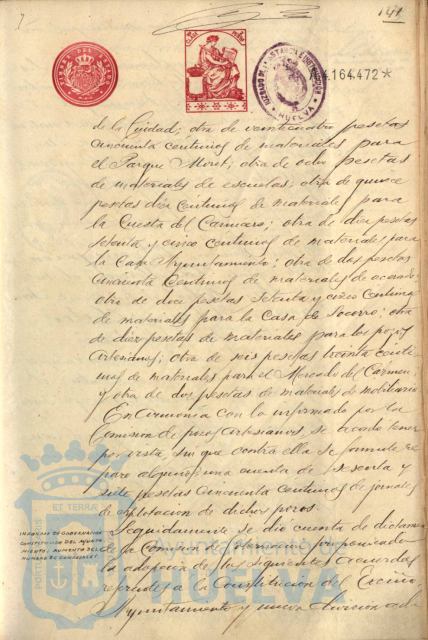 141
TIMBRE DEL ESTADO
A4.164.472*
JUZGADO DE 1ª INSTANCIA E INSTRUCCION
HUELVA
de la Ciudad; otra de veinticuatro pesetas
cincuenta centimos de materiales para
el Parque Moret; otra de ocho pesetas
de materiales de escuelas; otra de quince
pesetas diez centimos de materiales para
la Cuesta del Carnicero; otra de diez pesetas
setenta y cinco centimos de materiales para
la Casa Ayuntamiento; otra de dos pesetas
cincuenta centimos de materiales de acerado;
otra de doce pesetas setenta y cinco centimos
de materiales para la Casa de Socorro; otra
de diez pesetas de materiales para los pozos
artesianos; otra de seis pesetas treinta centi-
mos de materiales para el Mercado del Carmen
y otra de dos pesetas de materiales de mobiliario.
En armonia con lo informado por la
Comision de pozos artesianos, se acordó tener
por vista, sin que contra ella se formule re-
paro alguno, una cuenta de sesenta y
siete pesetas cincuenta centimos de jornales
de esplotacion de dichos pozos.
Seguidamente se dió cuenta de dictamen
de la Comision de Gobernacion proponiendo
la adopcion de los siguientes acuerdos
referentes a la Constitucion del Excmo
Ayuntamiento y nueva division
INFORME DE GOBERNACION
CONSTITUCION DEL AYUNTA
MIENTO. AUMENTO DEL
NUMERO DE CONCEJALES
Ayuntamiento de
HUELVA